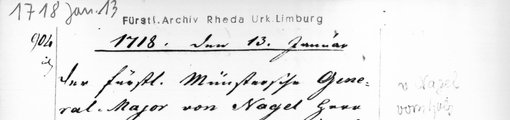 1718 Jan. 13
Fürstl. Archiv Rheda Urk. Limburg
904
1718. den 13. Januar
der fürstl. Münstersche Gene-
ral-Major von Nagel Herr
v Nagel